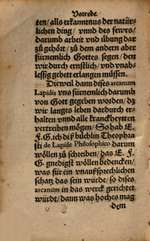 Vorrede.
ten/ als erkantnus der natür-
lichen ding/ vnnd des sewrs/
darumb arbeit vnd übung dar
zů gehört/ zů dem andern aber
fürnemlich Gottes segen/ den
wir durch ernstlich/ vnd vnab-
lessig gebett erlangen müssen.
Dieweil dann dises arcanum
Lapidis vns fürnemlich darumb
von Gott gegeben worden/ dz
wir langes leben dardurch er-
halten/ vnd alle kranckheyten
vertreiben mögen/ So hab E.
F. G. ich diß büchlin Theophra-
sti de Lapide Philosophico darum
wöllen zů schreiben/ das E. F.
G. gnedigst wöllen bedencken/
was für ein vnaußsprechlichen
schatz das sein würde/ so dises
arcanum in das werck gerichtet
würde/ dann was hoches mag
dem